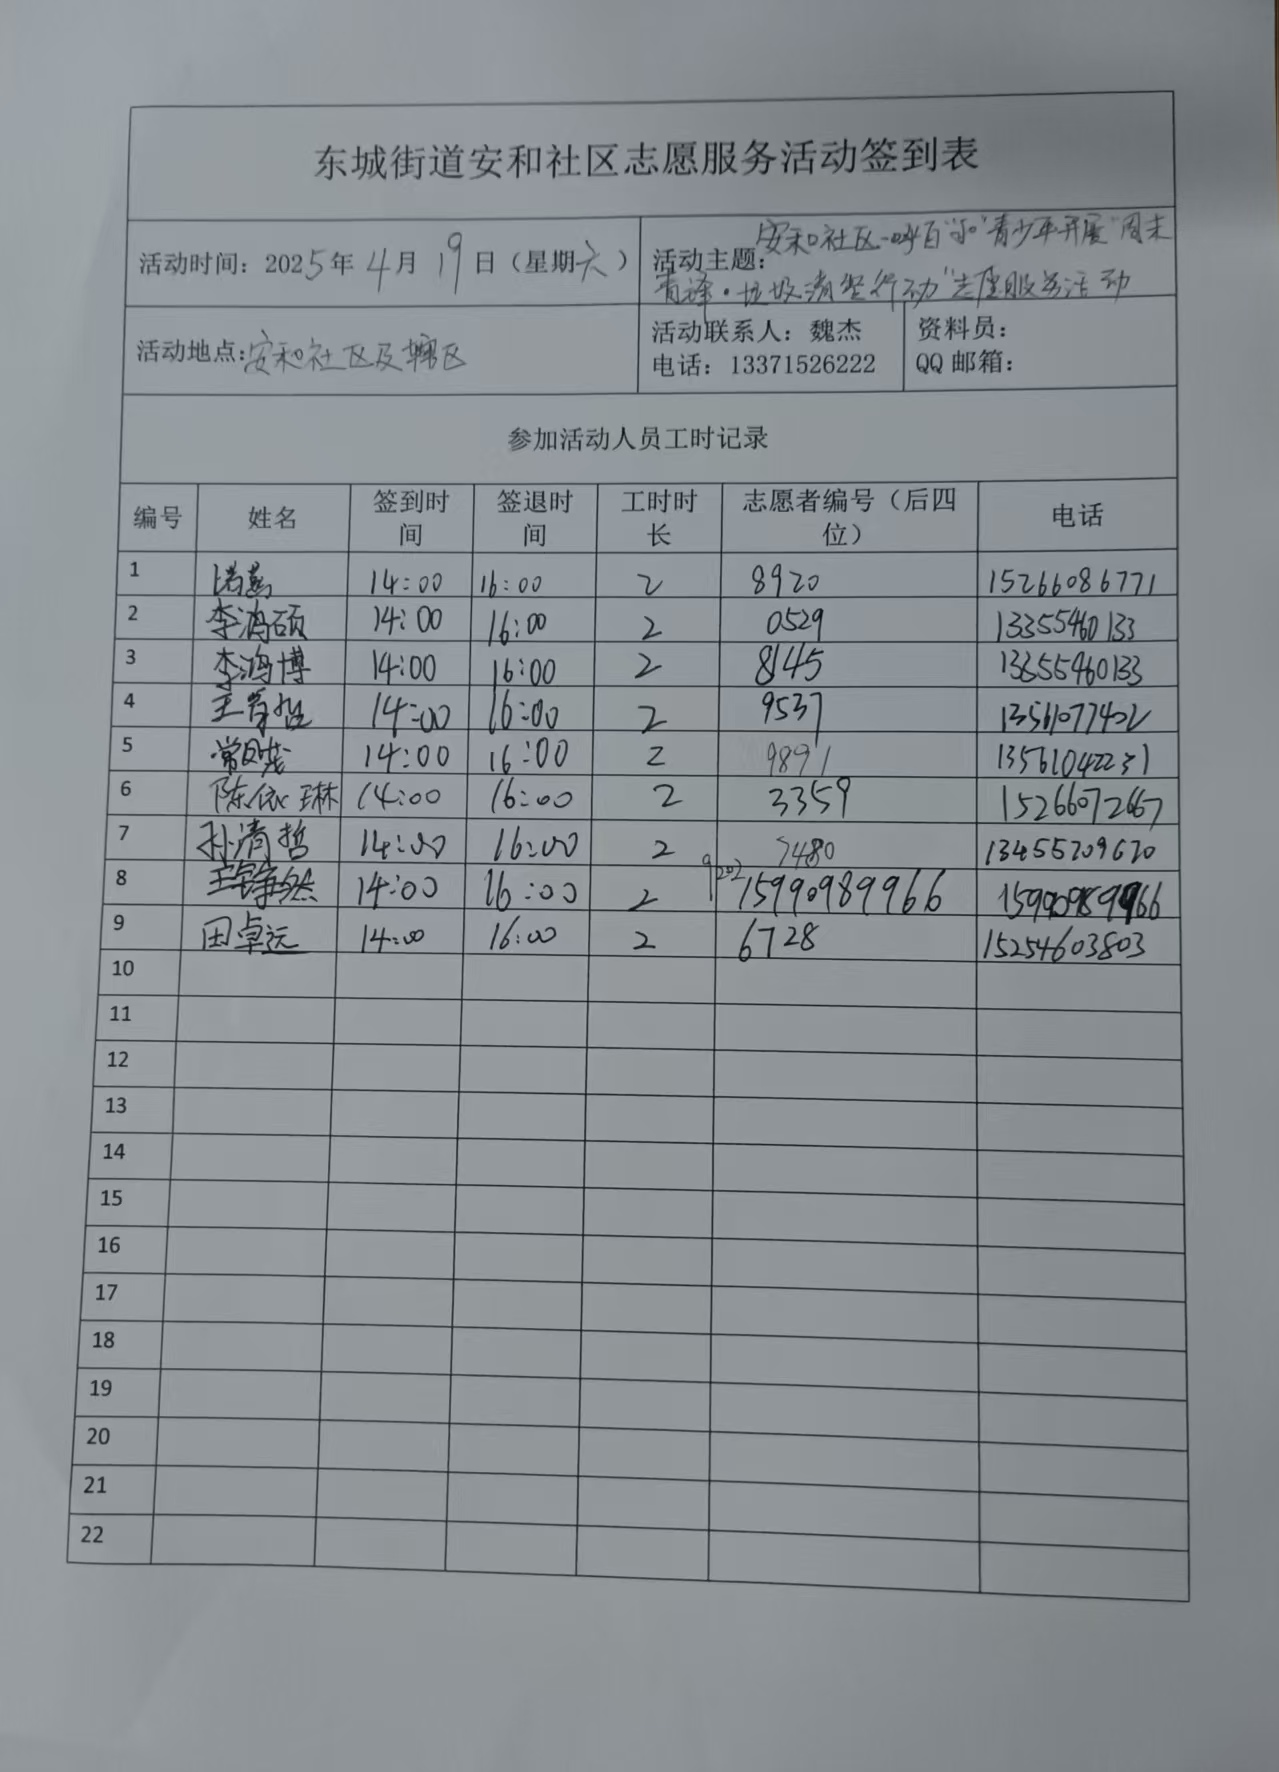 东城街道安和社区志愿服务活动签到表
活动时间：2025年4月19日（星期六）
活动主题：安和社区一呼百"和"青少年开展"周末
青译·垃圾清坚行动"志愿服务活动
活动地点：安和社区及辖区
活动联系人：魏杰
电话：13371526222
资料员：
QQ邮箱：
参加活动人员工时记录
编号 姓名 签到时间 签退时间 工时时长 志愿者编号（后四位） 电话
1 14:00 16:00 2 8920 15266086771
2 李鸿硕 14:00 16:00 2 0529 13355460133
3 李鸿博 14:00 16:00 2 8145 13355460133
4 14:00 16:00 2 9537 13561077402
5 14:00 16:00 2 9891 13561042231
6 陈依琳 14:00 16:00 2 3359 15266072667
7 孙清哲 14:00 16:00 2 7480 13455209670
8 14:00 16:00 2 9202 15990989966 15990989966
9 田卓远 14:00 16:00 2 6728 15254603803
10
11
12
13
14
15
16
17
18
19
20
21
22